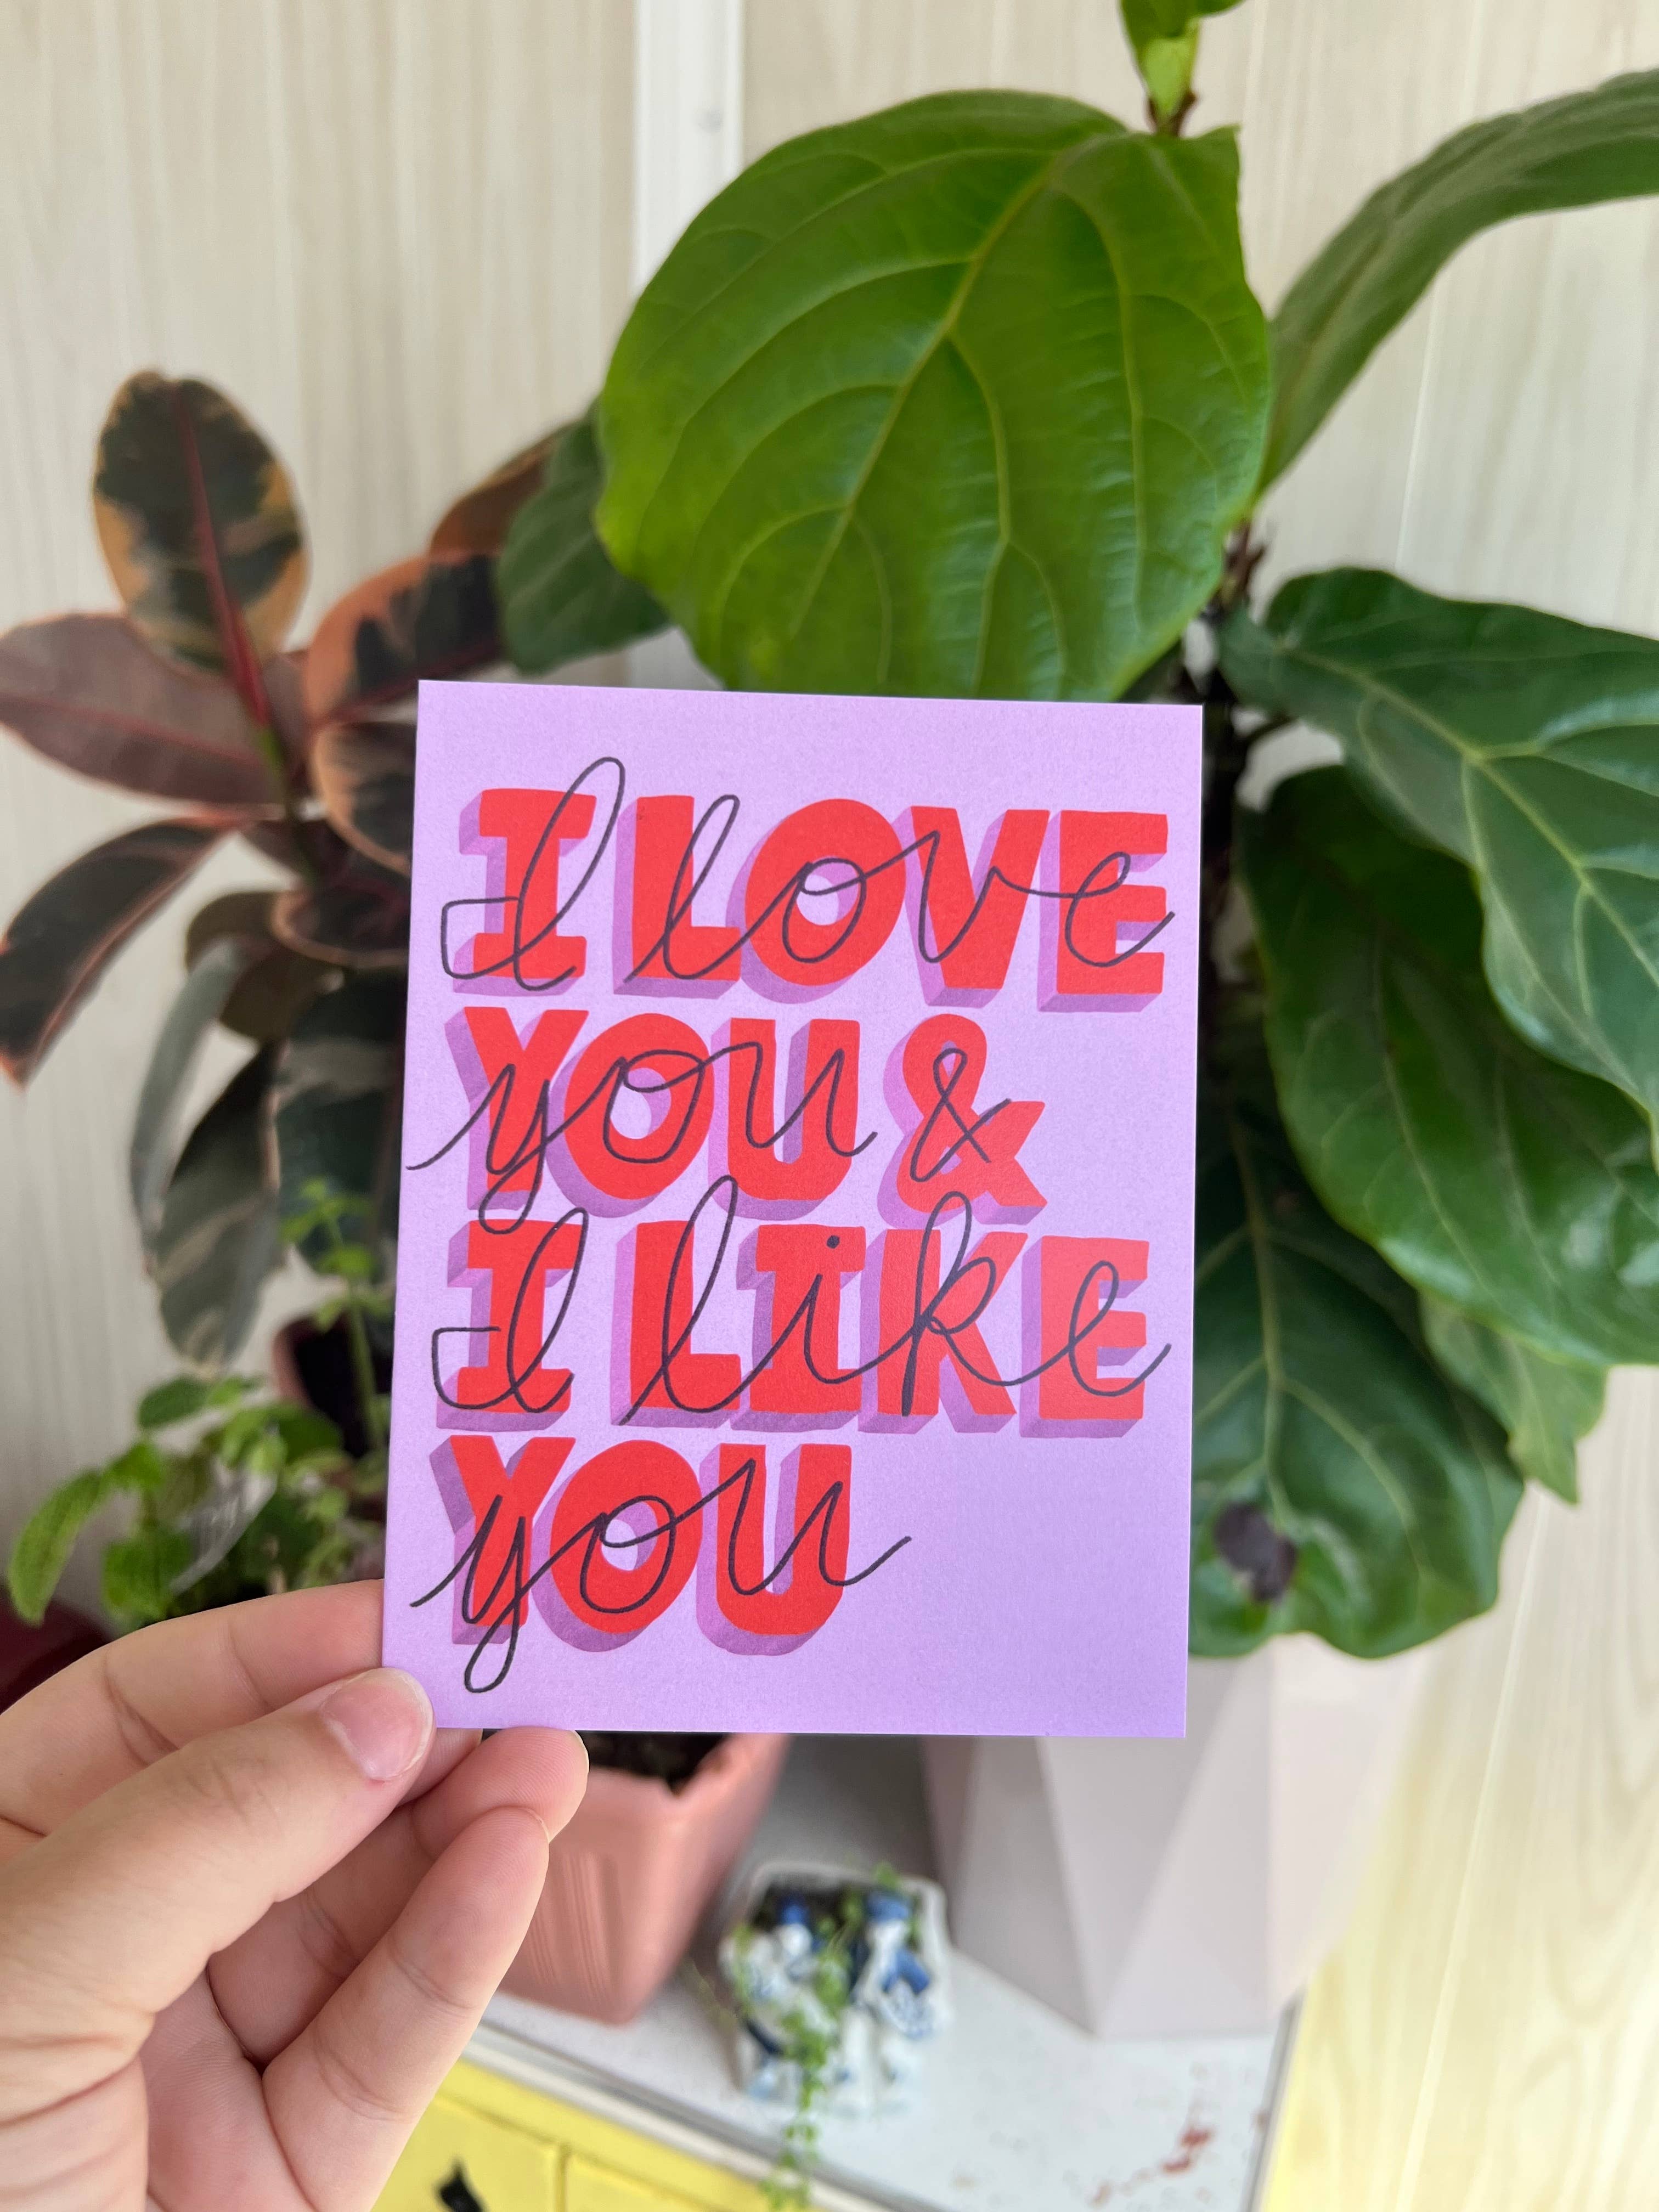 I LOVE
YOU &
I LIKE
YOU
I love
you &
I like
you